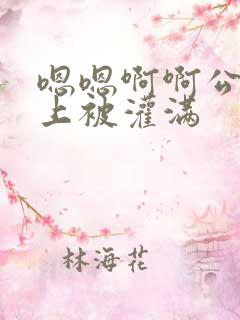 嗯嗯啊啊公
上被灌满
林海花